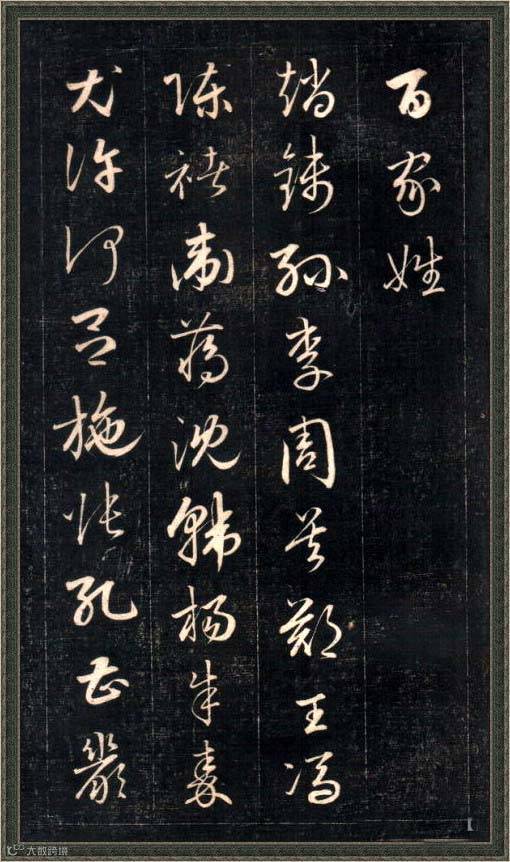 百家姓
趙錢孫李周吳鄭王馮
陳褚衛蔣沈韓楊朱秦
尤許何呂施張孔曹嚴
大数跨境